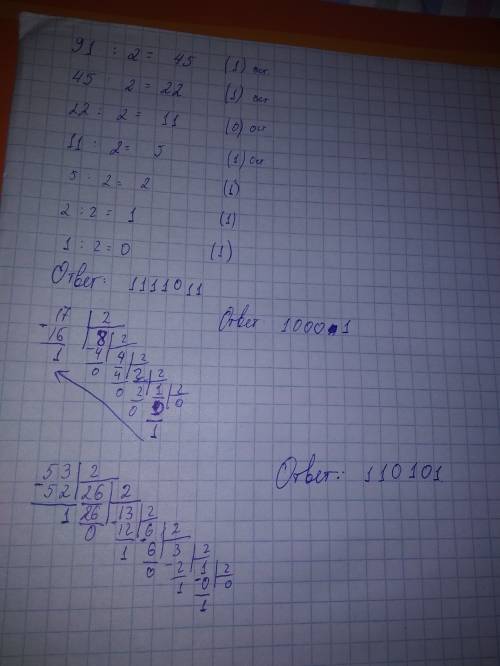 91 : 2 = 45 (1) ост
45 2 = 22 (1) ост
22 : 2 = 11 (0) ост
11 : 2 = 5 (1) ост
5 : 2 = 2 (1)
2 : 2 = 1 (1)
1 : 2 = 0 (1)
Ответ: 1111011
17 2
- 16 8 2
1 - 4 4 2
0 4 2 2
0 2 1 2
0 0 0
1
Ответ 10001
- 53 2
52 26 2
1 26 - 13 2
0 12 6 2
1 6 3 2
0 - 2 1 2
1 - 0 0
1
Ответ: 110101